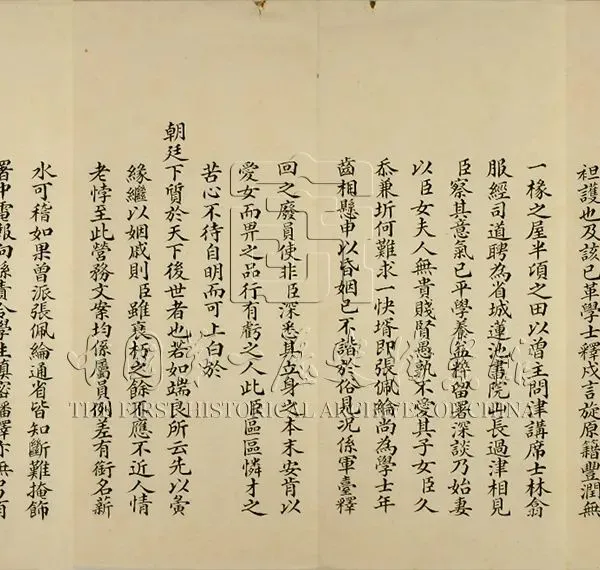 袒護也及該已革學士釋戍言旋原籍豐潤無
一椽之屋半頃之田以曾主問津講席士林翕
服經司道聘為省城蓮池書院山長過津相見
臣察其意氣已平學養益粹留署深談乃始妻
以臣女夫人無貴賤賢愚孰不愛其子女臣久
忝兼圻何難求一快壻即張佩綸尚為學士年
齒相懸申以昏姻已不諧於俗見況係軍臺釋
回之廢員使非臣深悉其立身之本末安肯以
愛女而畀之品行有虧之人此臣區區憐才之
苦心不待自明而可上白於
朝廷下質於天下後世者也若如端良所云先以夤
緣繼以姻戚則臣雖衰朽之餘不應不近人情
老悖至此營務文案均係屬員例差有銜名薪
水可稽如果曾派張佩綸通省皆知斷難掩飾
署中電報向係責令學生慎密繙譯亦無
中國第一歷史檔案館
THE FIRST HISTORICAL ARCHIVES OF CHINA